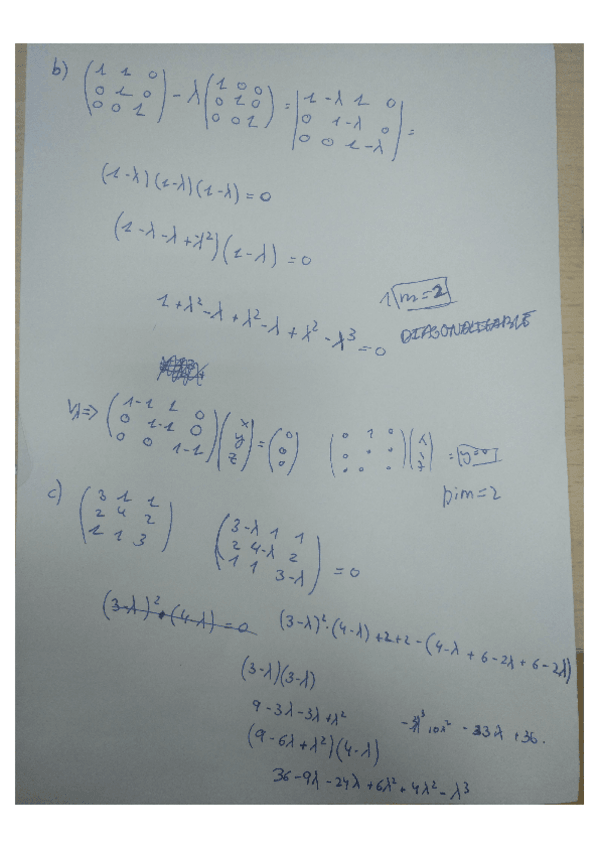 b) (1 1 0 / 0 1 0 / 0 0 1) - λ (1 0 0 / 0 1 0 / 0 0 1) = |1-λ 1 0 / 0 1-λ 0 / 0 0 1-λ| =
(1-λ)(1-λ)(1-λ) = 0
(1-λ-λ+λ²)(1-λ) = 0
1 m=2
1+λ²-λ+λ²-λ+λ²-λ³ = 0
DIAGONALIZABLE
V₁ => (1-1 1 0 / 0 1-1 0 / 0 0 1-1)(x / y / z) = (0 / 0 / 0) (0 1 0 / 0 0 0 / 0 0 0)(x / y / z) = y=0
Dim=2
c) (3 1 1 / 2 4 2 / 1 1 3) (3-λ 1 1 / 2 4-λ 2 / 1 1 3-λ) = 0
(3-λ)²·(4-λ) = 0 (3-λ)²·(4-λ)+2+2-(4-λ+6-2λ+6-2λ)
(3-λ)(3-λ)
9-3λ-3λ+λ²
10λ² - 33λ + 36.
(9-6λ+λ²)(4-λ)
36-9λ-24λ+6λ²+4λ²-λ³